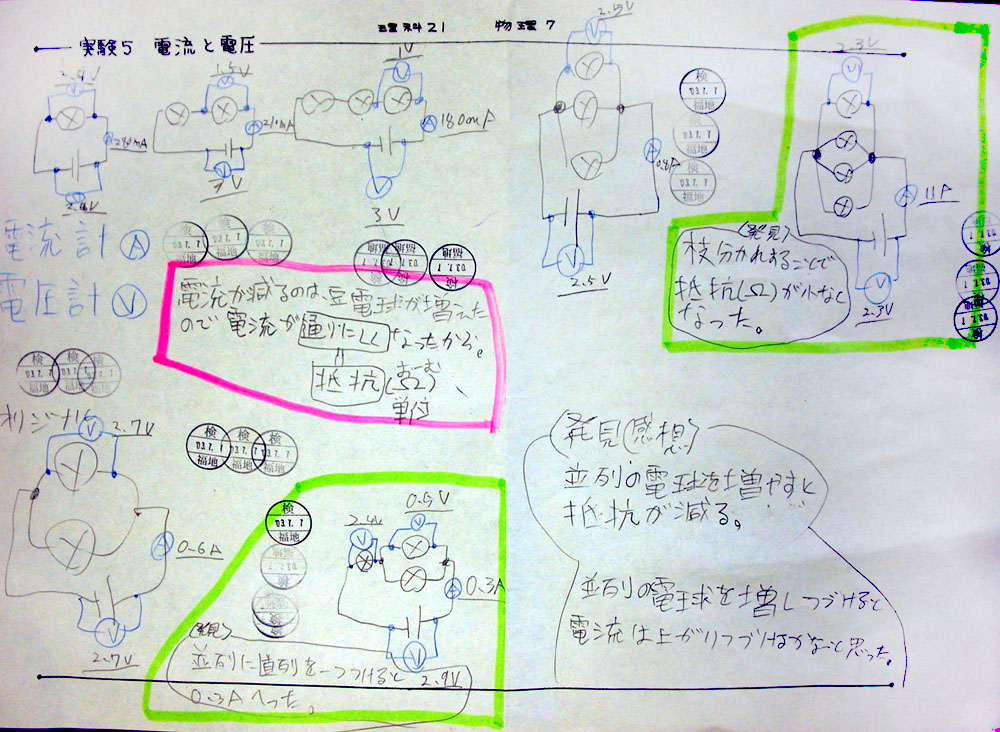 理科21 物理7
実験5 電流と電圧
2.9V
290mA
1.5V
210mA
1V
180mA
3V
2.5V
0.8A
2.5V
2.3V
(発見)
枝分かれすることで
抵抗(Ω)が小なく
なった。
電流計 A
電圧計 V
電流が減るのは、豆電球が増えた
ので電流が通りにくくなったから。
||
抵抗(Ω)、
おーむ
単位
オリジナル
2.7V
0.6A
2.7V
2.4V
0.5V
0.3A
2.9V
(発見)
並列に直列を一つつけると
0.3Aへった。
(発見(感想)
並列の電球を増やすと
抵抗が減る。
並列の電球を増しつづけると
電流は上がりつづけるかなと思った。
検
'03.7.7
福地